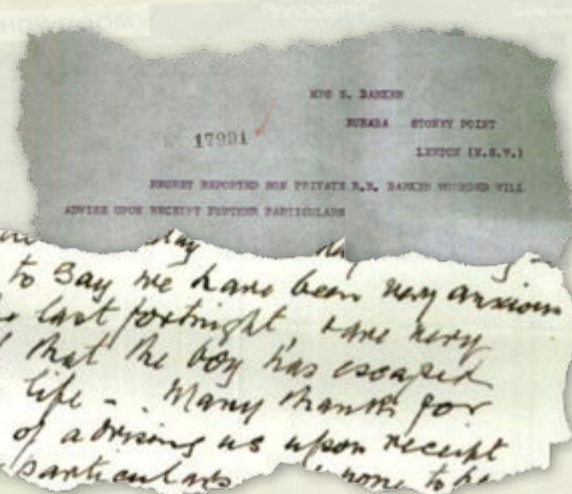 PinnacleHPC
MRS S. BARKER
STONEY POINT
17991
LEETON (N.S.W.)
REGRET REPORTED SON PRIVATE BARKER WOUNDED WILL
ADVISE UPON RECEIPT FURTHER PARTICULARS
to say we have been very anxious
last fortnight & are very
that the boy has escaped
life - Many thanks for
of advising us upon receipt
particulars to be